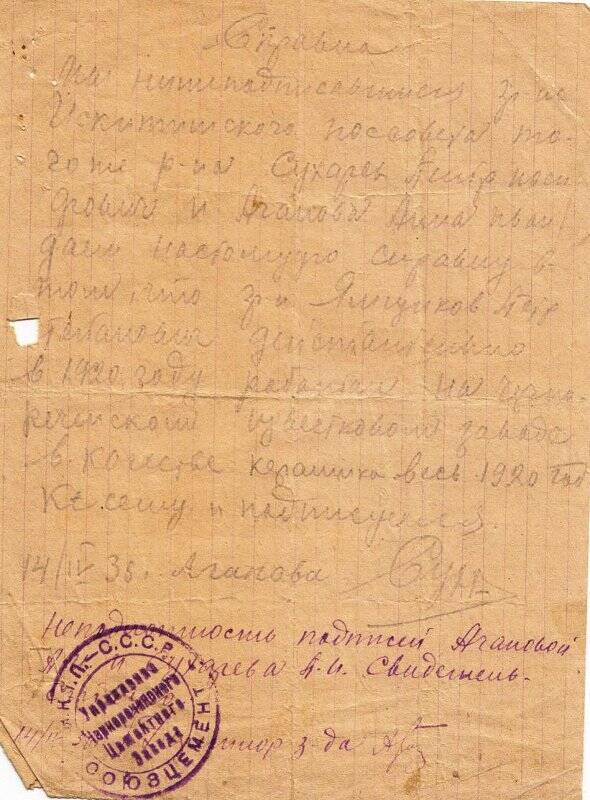 Справка
Мы нижеподписавшиеся гр-не
Искитимского поссовета то-
го же р-на Сухарев Петр
и Агапова Анна
даем настоящую справку в
том, что гр-н Ямщиков Петр
действительно
в 1920 году работал на Черно-
реченском известковом заводе
в качестве весь 1920 год
к сему и подписуемся.
14/IV 35. Агапова Сух
подписей Агаповой
и Сухарева П.И. свидетель-
14/IV з-да
Н.К.Т.П.–С.С.С.Р.
СОЮЗЦЕМЕНТ
Управление
Чернореченского
Цементного
Завода